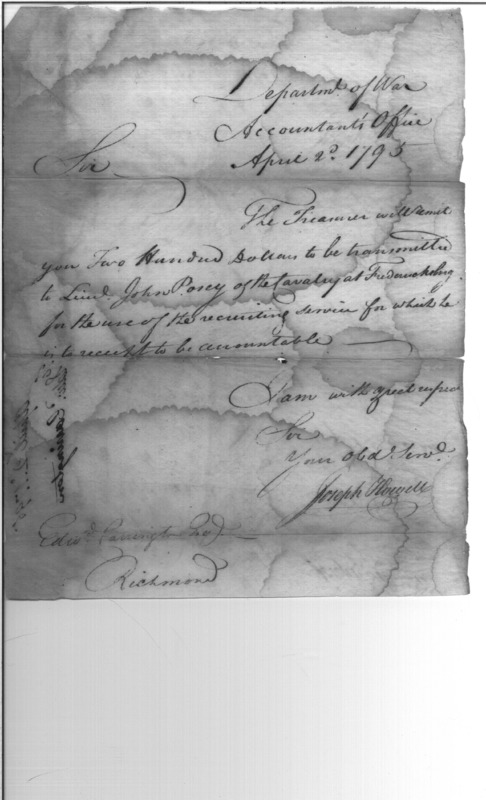 Departmt. of War
Accountant's Office
April 2d. 1793
Sir
The Treasurer will remit
you Two Hundred Dollars to be transmitted
to Lieut. John Posey of the Cavalry at Fredericksburg
for the use of the recruiting service for which he
is to receipt to be accountable
I am with great respect
Sir
Your Obdt. Servt.
Joseph Howell
Edwd. Carrington Esqr.
Richmond